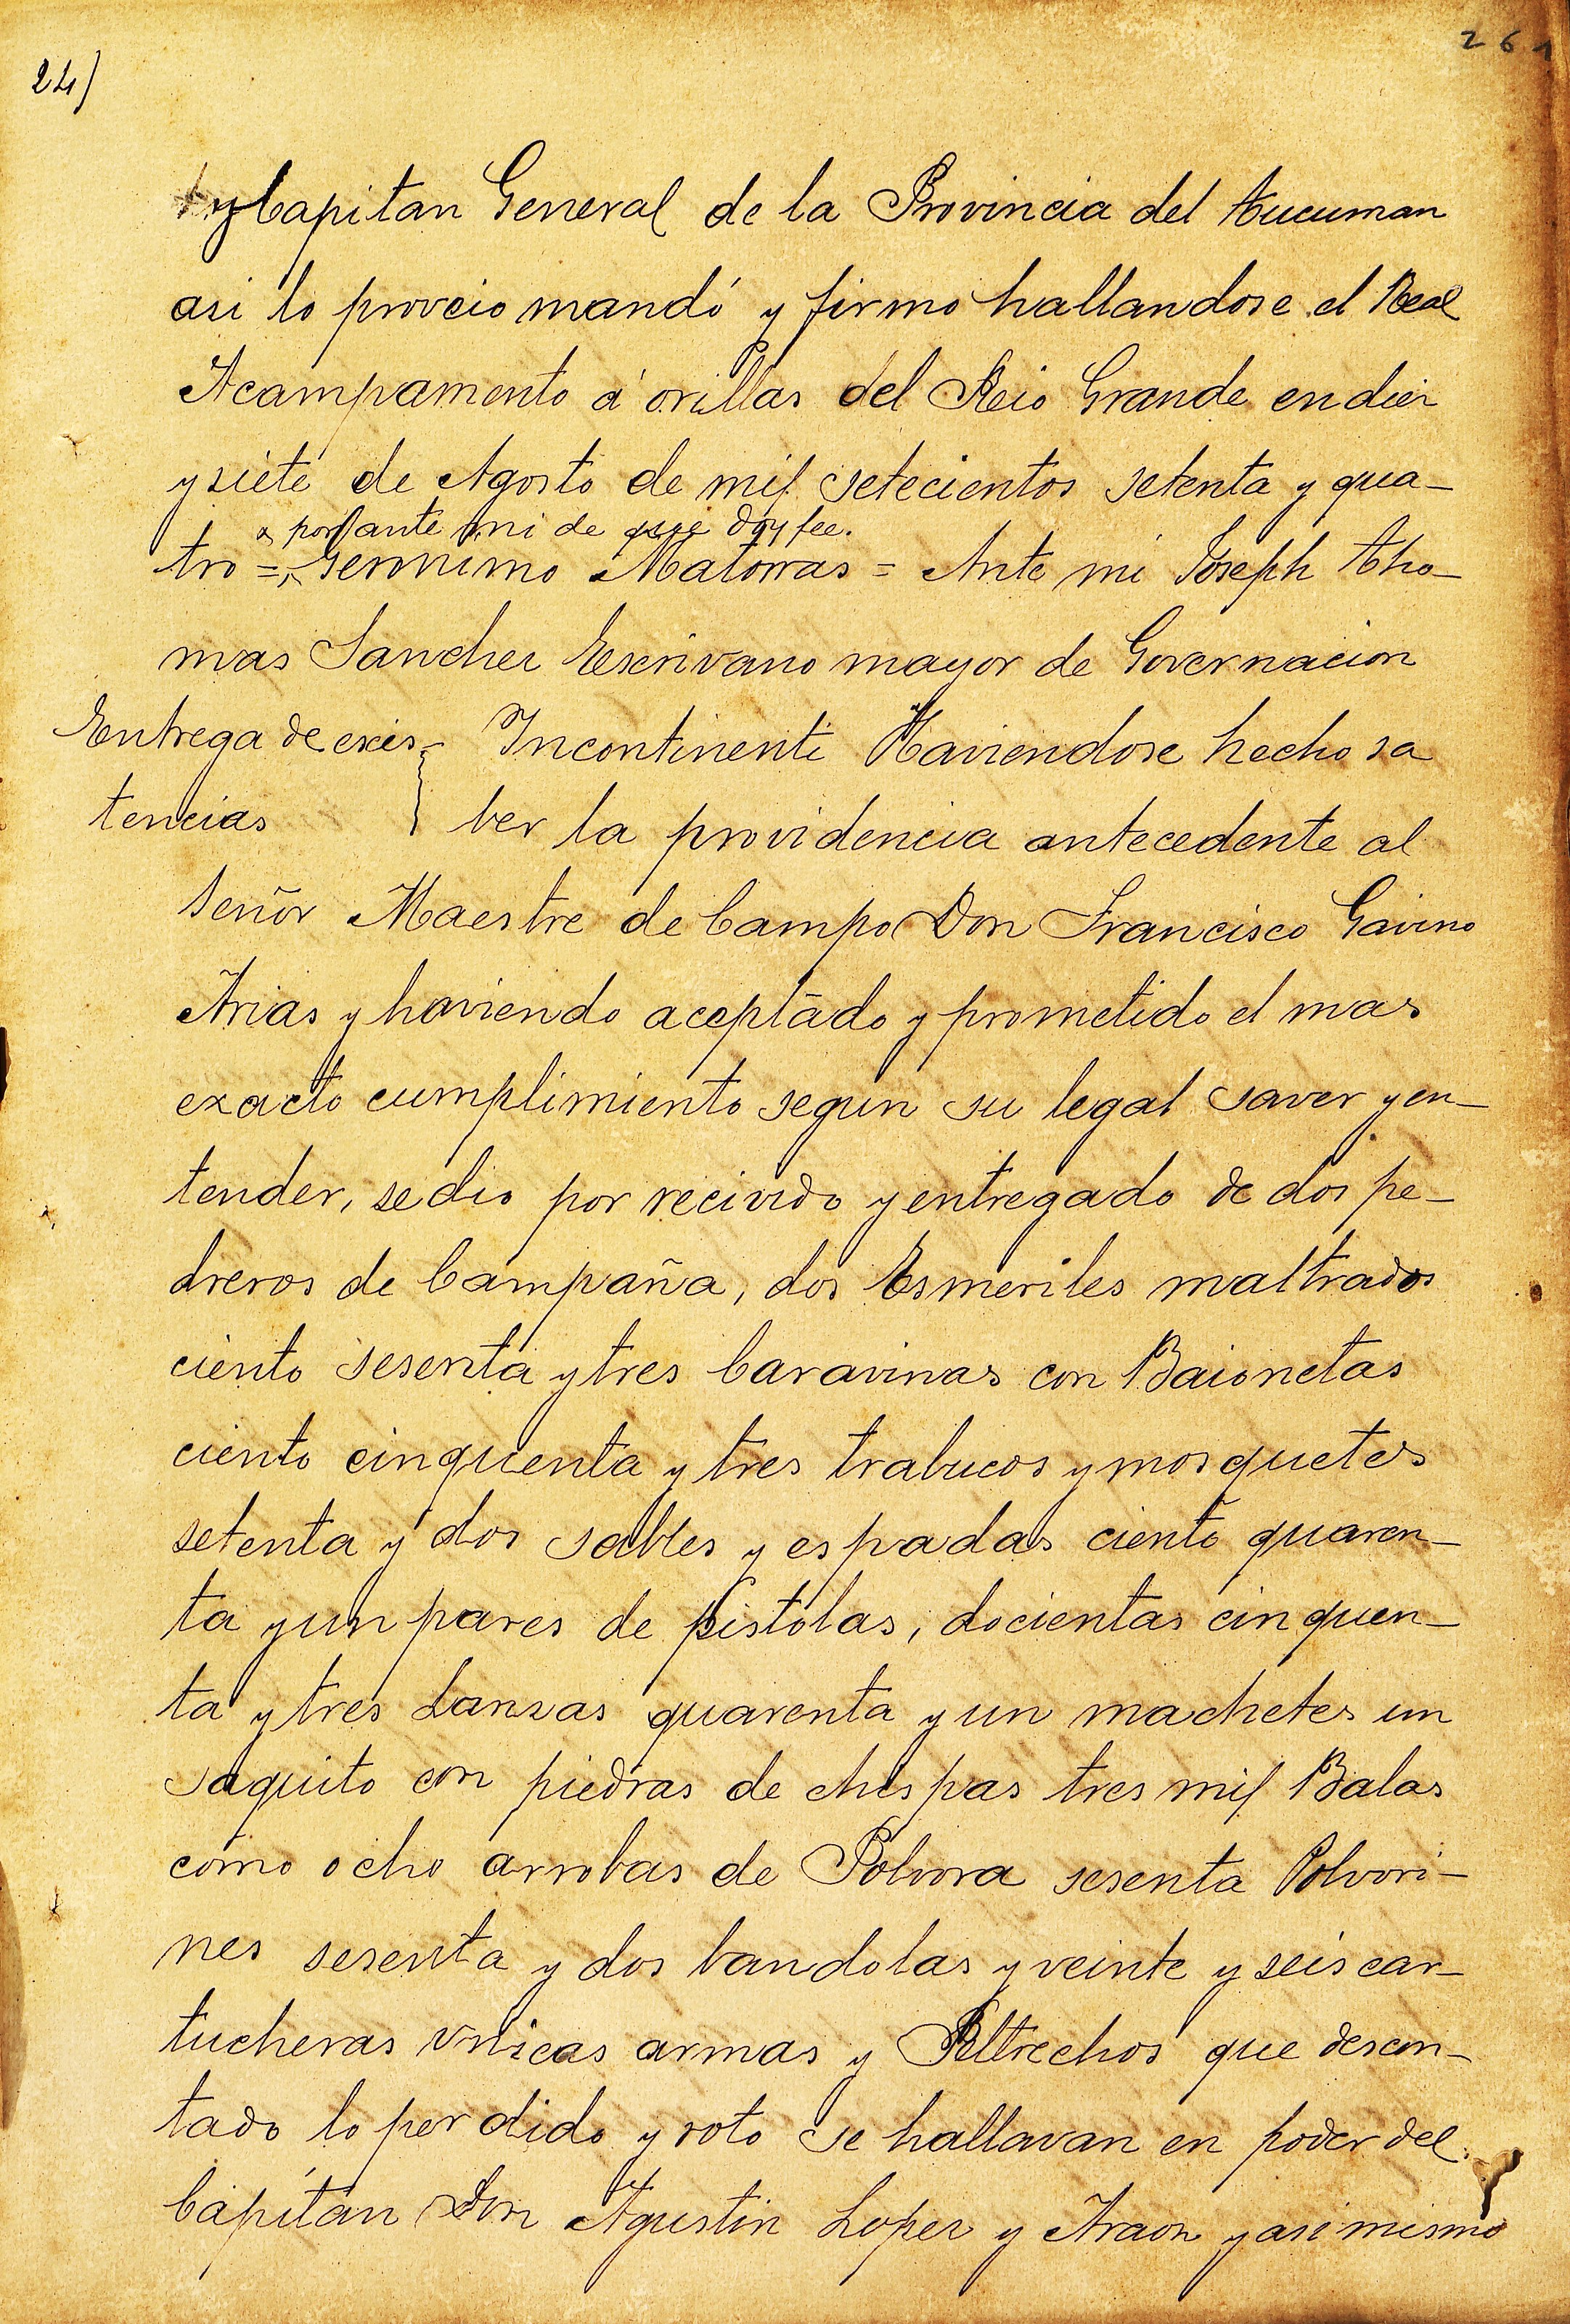 24)
261
y Capitan General de la Provincia del Tucuman
asi lo proveio mandó y firmo hallandose el Real
Acampamento á orillas del Rio Grande en diez
y siete de Agosto de mil setecientos setenta y qua-
por ante mi de que doy fee.
tro = Geronimo Matorras = Ante mi Joseph Tho-
mas Sanchez Escrivano mayor de Governacion
Entrega de exis-
tencias
Incontinenti Haviendose hecho sa
ber la providencia antecedente al
Señor Maestre de Campo Don Francisco Gavino
Arias y haviendo aceptado y prometido el mas
exacto cumplimiento segun su legal saver y en-
tender, se dio por recivido y entregado de dos pe-
dreros de Campaña, dos Esmeriles maltrados
ciento sesenta y tres Caravinas con Baionetas
ciento cinquenta y tres trabucos y mosquetes
setenta y dos sables y espadas ciento quaren-
ta y un pares de pistolas, docientas cinquen-
ta y tres Lanzas quarenta y un machetes un
saquito con piedras de chispas tres mil Balas
como ocho arrobas de Polvora sesenta Polvori-
nes sesenta y dos bandolas y veinte y seis car-
tucheras unicas armas y Peltrechos que descon-
tado lo perdido y roto se hallavan en poder del
Capitan Don Agustin Lopez y Araon y asi mismo